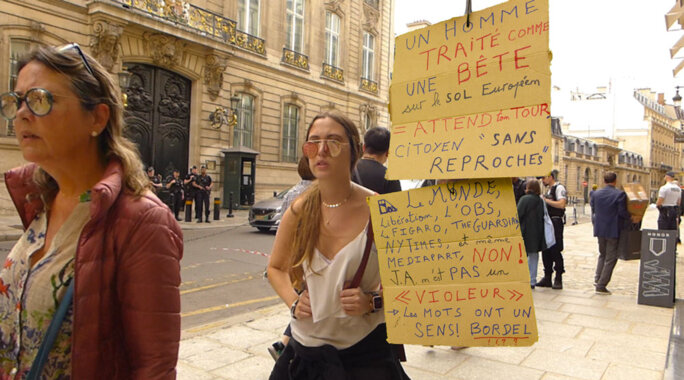 UN HOMME
TRAITÉ COMME
UNE BÊTE
sur le SOL Européen
= ATTEND ton TOUR
CITOYEN "SANS
REPROCHES"
LE MONDE,
Libération, L'OBS,
LE FIGARO, THE GUARDIAN,
NYTIMES, et même
MEDIAPART, NON!
J.A. n'EST PAS un
<<VIOLEUR>>
→ Les MOTS ONT UN
SENS! BORDEL
HONOR